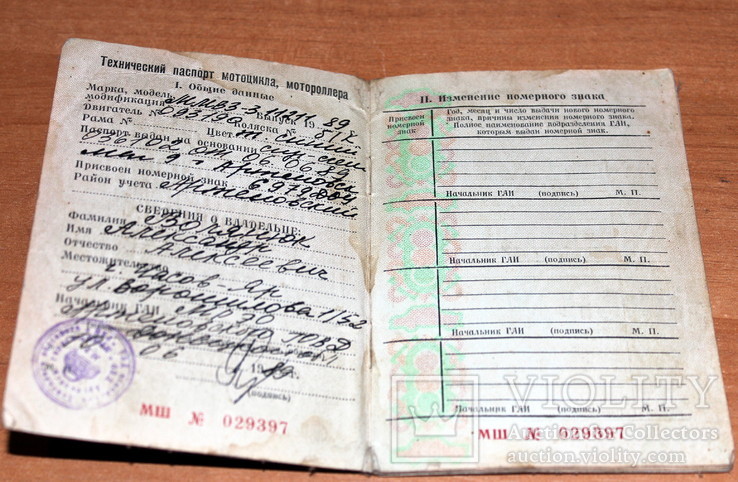 Технический паспорт мотоцикла, мотороллера
I. Общие данные
Марка, модель,
модификация ММВЗ-3 Выпуск 19 89
Двигатель № Коляска №
Рама № Цвет синий
Паспорт выдан на основании
06.06.89
маг 9 г. Артемовск
Присвоен номерной знак
Район учета Артемовский
СВЕДЕНИЯ О ВЛАДЕЛЬЦЕ:
Фамилия
Имя Александр
Отчество Алексеевич
Местожительство
г. Часов-Яр
ул. Ворошилова 1/52
Начальник ГАИ МРЭО
Артемовского ГОВД
06 19 89
(подпись)
МШ № 029397
II. Изменение номерного знака
Присвоен номерной знак
Год, месяц и число выдачи нового номерного знака, причины изменения номерного знака. Полное наименование подразделения ГАИ, которым выдан номерной знак.
Начальник ГАИ (подпись) М. П.
Начальник ГАИ (подпись) М. П.
Начальник ГАИ (подпись) М. П.
Начальник ГАИ (подпись) М. П.
МШ № 029397
VIOLITY
Auction for Collectors
auction.violity.com